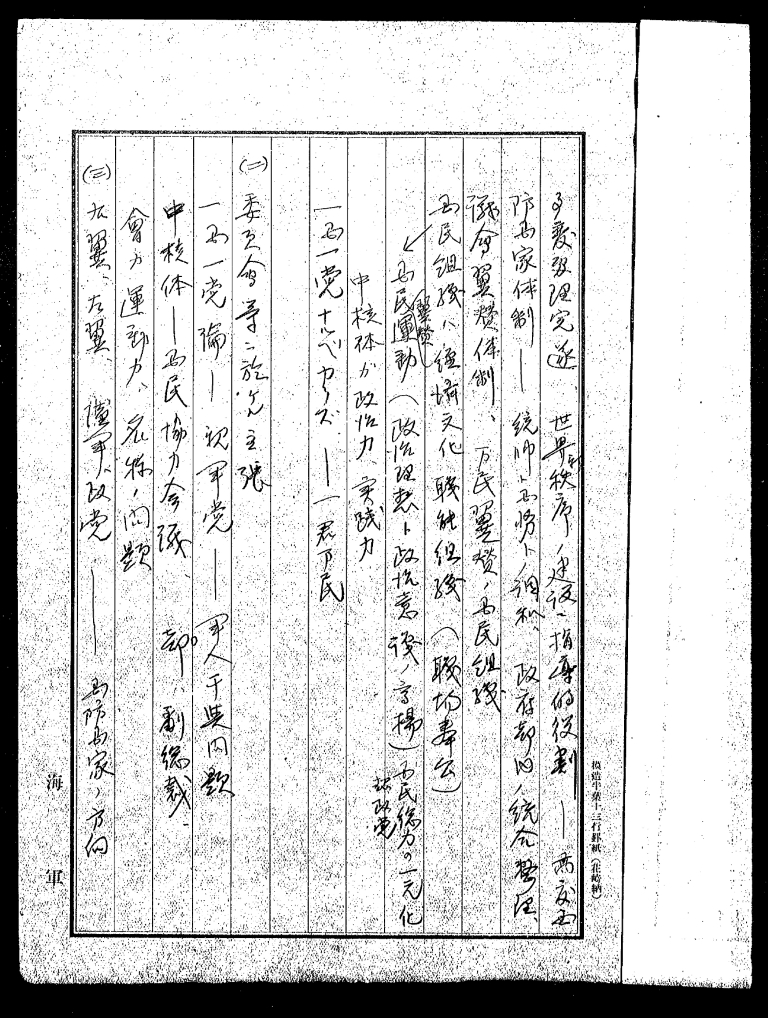 事変処理完遂、世界新秩序ノ建設ニ指導的役割 ― 高度国
防国家体制 ― 統帥ト国務トノ調和、政府部内ノ統合整理
議会翼賛体制、万民翼賛ノ国民組織
国民組織ハ経済文化職能組織（職場奉公）
国民翼賛運動（政治理想ト政治意識ノ高揚）国民総力の一元化
中核体ガ政治力、実践力
一国一党ナルベカラズ ― 一君万民
(二) 委員会等ニ於ケル主張
一国一党論 ― 親軍党 ― 軍人干与問題
中核体 ― 国民協力会議、部、副総裁、
会カ運動カ、名称ノ問題
(三) 右翼、左翼、陸軍、政党 ― 国防国家ノ方向
海軍
模造半葉十三行罫紙